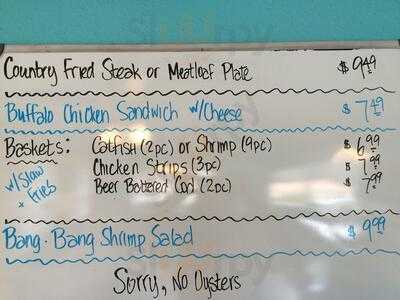 Country Fried Steak or Meatloaf Plate $9.49
Buffalo Chicken Sandwich w/Cheese $7.49
Baskets: Catfish (2pc) or Shrimp (9pc) $6.99
Chicken Strips (3pc) $7.99
w/Slaw + Fries
Beer Battered Cod (2pc) $7.99
Bang-Bang Shrimp Salad $9.99
Sorry, No Oysters